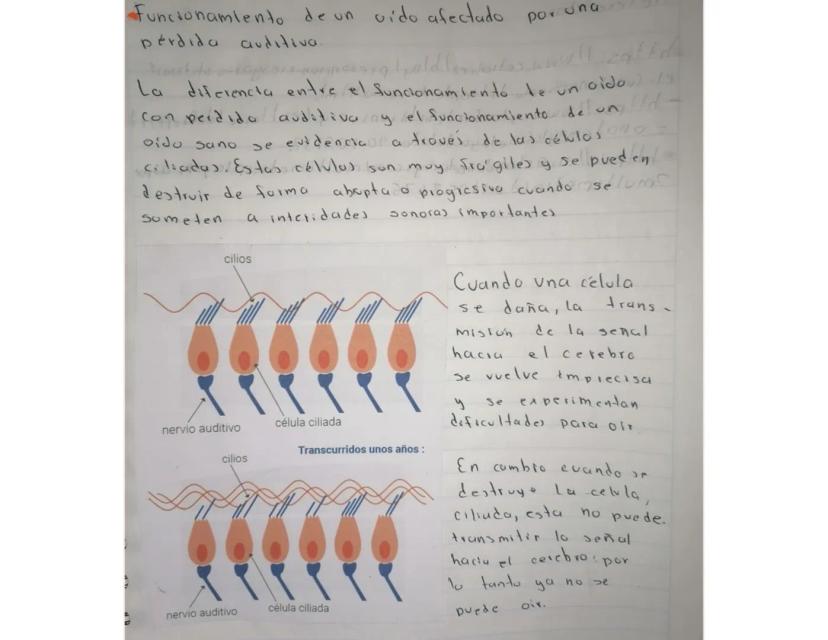 Funcionamiento de un oido afectado por una
pérdida auditiva.
La diferencia entre el funcionamiento de un oido
con perdida auditiva y el funcionamiento de un
oido sano se evidencia a través de las células
ciliadas. Estas células son muy frágiles y se pueden
destruir de forma abupta o progresiva cuando se
someten a intecidades sonoras importantes
cilios
nervio auditivo
célula ciliada
Transcurridos unos años :
cilios
nervio auditivo
célula ciliada
Cuando una célula
se daña, la trans-
misión de la señal
hacia el cerebro
se vuelve imprecisa
y se experimentan
dificultades para oir.
En cambio cuando se
destruye la celula,
ciliada, esta no puede.
transmitir la señal
hacia el cerebro: por
lo tanto ya no se
puede oir.